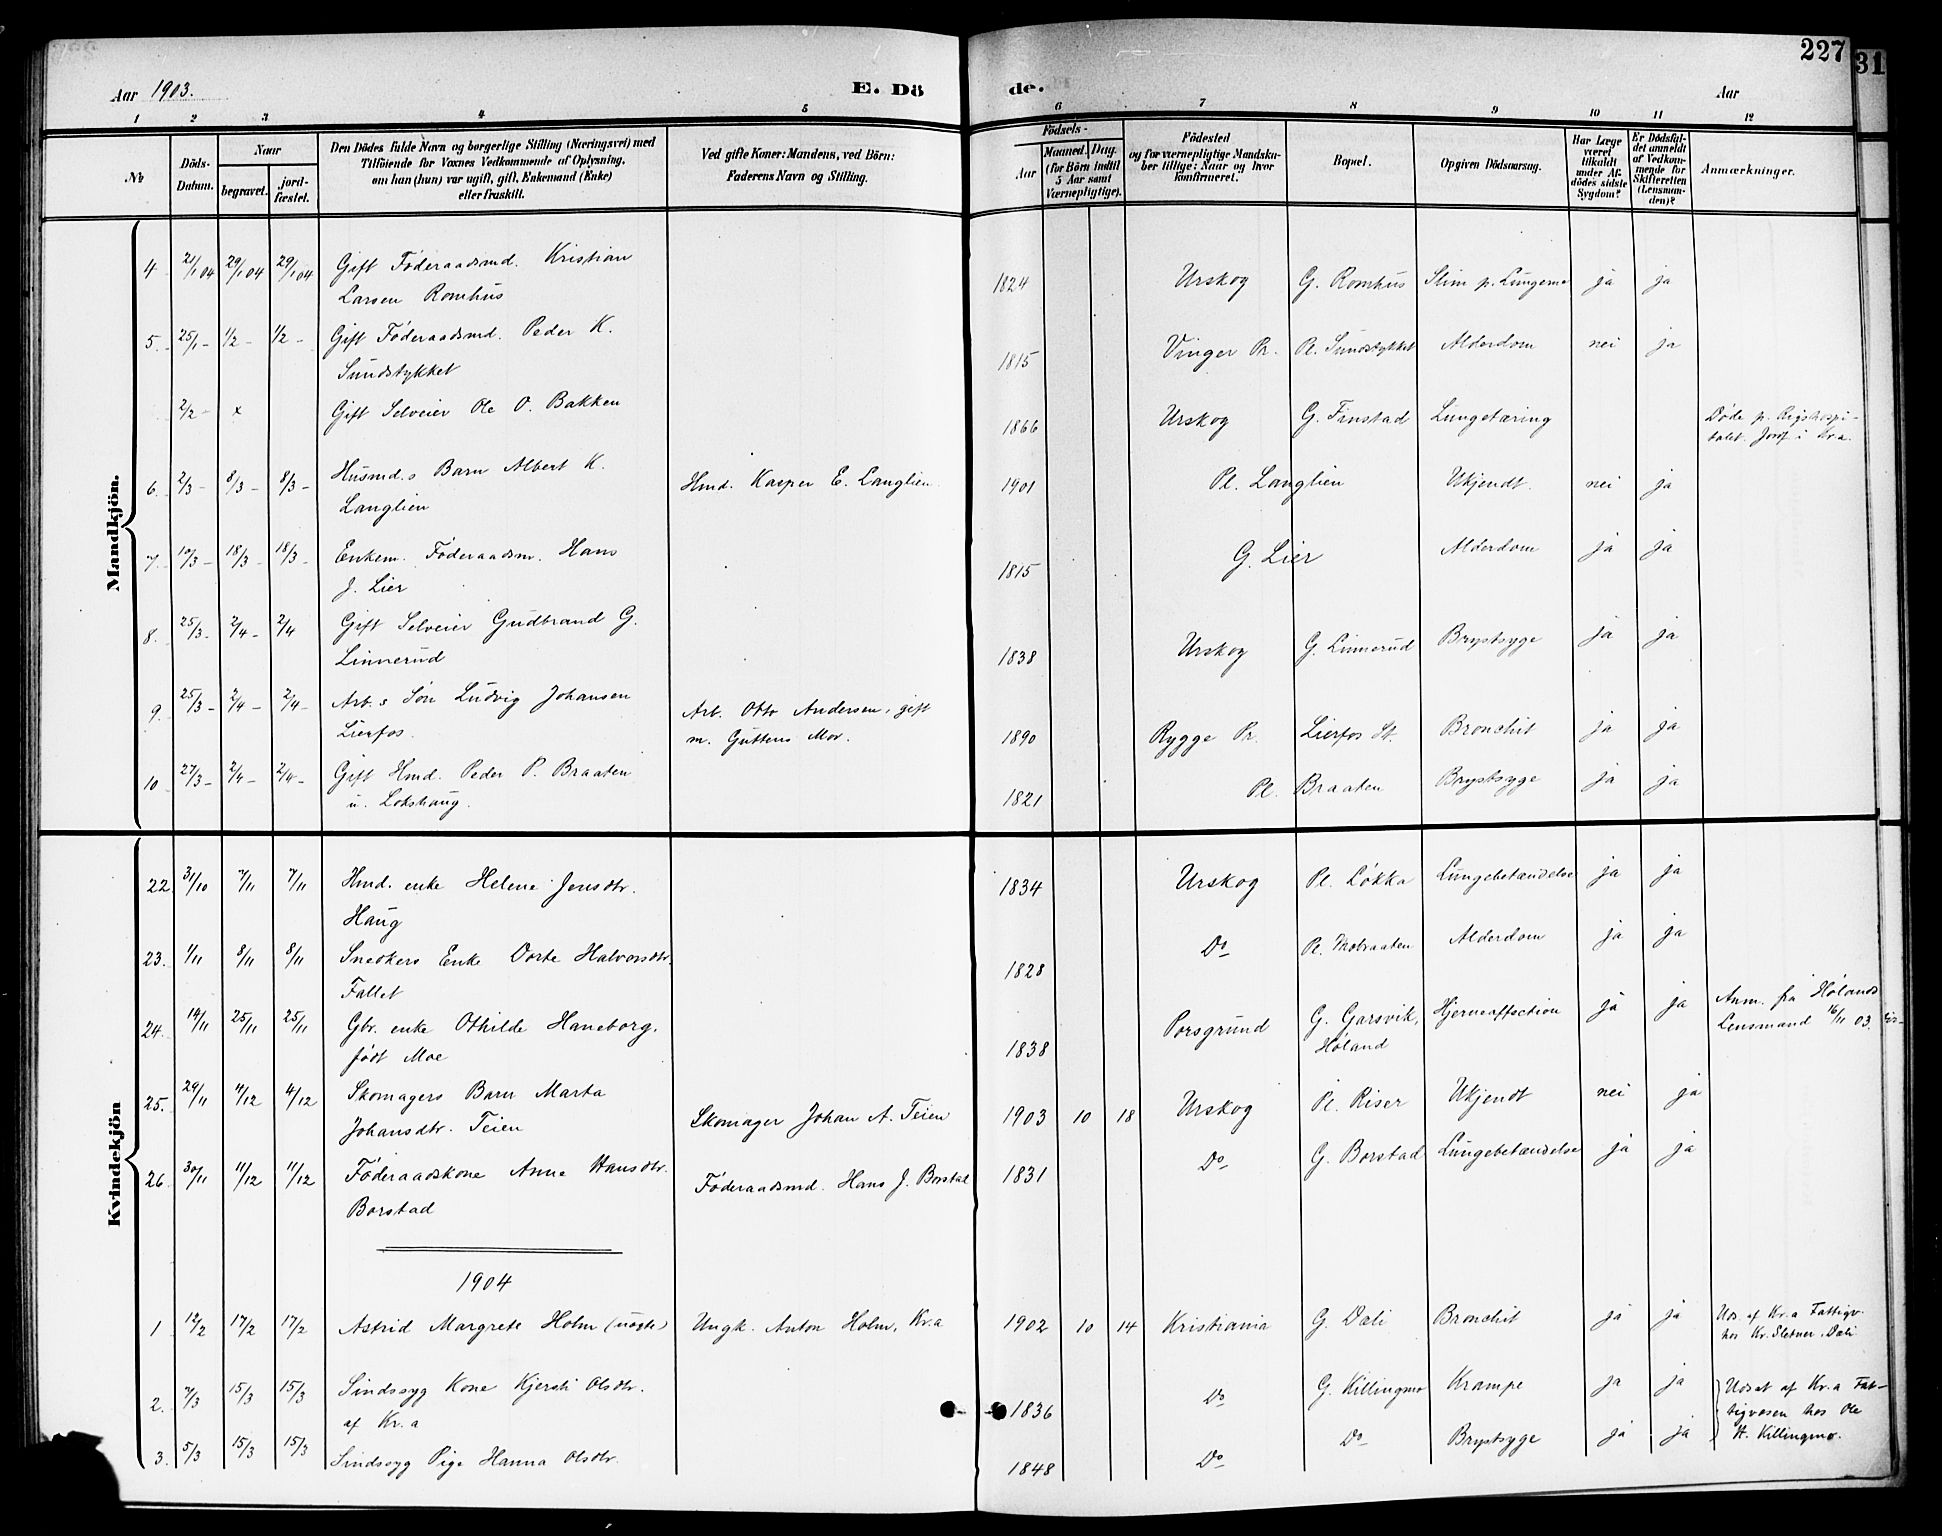 227
31
Aar 1903.
E. Dö
de.
Aar
1 2 3 4 5 6 7 8 9 10 11 12
№
Döds-Datum.
Naar
begravet.
jord-fæstet.
Den Dödes fulde Navn og borgerlige Stilling (Næringsvei) med
Tilföiende for Voxnes Vedkommende af Oplysning,
om han (hun) var ugift, gift, Enkemand (Enke)
eller fraskilt.
Ved gifte Koner: Mandens, ved Börn:
Faderens Navn og Stilling.
Födsels-
Aar
Maaned. Dag.
(for Börn indtil 5 Aar samt Værnepligtige).
Födested
og for værnepligtige Mandska-
ber tillige: Naar og hvor
konfirmeret.
Bopæl.
Opgiven Dödsaarsag.
Har Læge været tilkaldt under Af-dödes sidste Sygdom?
Er Dödsfal-det anmeldt af Vedkom-mende for Skifteretten (Lensman-den)?
Anmærkninger.
Mandkjön.
4 21/1 04 29/1 04 29/1 04 Gift Føderaadsmd. Kristian
Larsen Romhus 1824 Urskog G. Romhus Slim p. Lungerne ja ja
5. 25/1 – 1/2 – 1/2 – Gift Føderaadsmd. Peder K.
Sundstykket 1815 Vinger Pr. Pl. Sundstykket Alderdom nei ja
2/2 – x Gift Selveier Ole O. Bakken 1866 Urskog G. Finstad Lungetæring Døde p. Rigshospi-
talet. Jordf. i Kr.a.
6. 2/3 – 8/3 – 8/3 – Husmd.s Barn Albert K.
Langlien Hmd. Kasper E. Langlien. 1901 Pl. Langlien Ukjendt. nei ja
7. 10/3 – 18/3 – 18/3 – Enkem. Føderaadsm. Hans
J. Lier 1815 G. Lier Alderdom ja ja
8. 25/3 – 2/4 – 2/4 Gift Selveier Gudbrand G.
Linnerud 1838 Urskog G. Linnerud Brystsyge ja ja
9. 25/3 – 2/4 – 2/4 – Arb.s Søn Ludvig Johansen
Lierfos. Arb. Otto Andersen, gift
m. Guttens Mor. 1890 Rygge Pr. Lierfos St. Bronchit ja ja
10 27/3 – 2/4 – 2/4 – Gift Hmd. Peder P. Braaten
u. Lokshaug. 1821 Pl. Braaten Brystsyge ja ja
Kvindekjön
22. 31/10 7/11 7/11 Hmd. enke Helene Jensdtr.
Haug 1834 Urskog Pl. Løkka Lungebetændelse ja ja
23. 1/11 8/11 8/11 Snedkers Enke Dorte Halvorsdtr.
Fallet 1828 Do Pl. Mobraaten Alderdom ja ja
24. 14/11 25/11 25/11 Gbr. enke Othilde Haneborg,
født Moe 1838 Porsgrund G. Garsvik,
Høland Hjerneaffection ja ja Anm. fra Hølands
Lensmand 16/11 03.
25. 29/11 4/12 4/12 Skomagers Barn Marta
Johansdtr. Teien Skomager Johan A. Teien 1903 10 18 Urskog Pl. Riser Ukjendt nei ja
26. 30/11 11/12 11/12 Føderaadskone Anne Hansdtr.
Borstad Føderaadsmd. Hans J. Borstad 1831 Do G. Borstad Lungebetændelse ja ja
1904
1 12/2 17/2 17/2 Astrid Margrete Holm (uægte) Ungk. Anton Holm, Kr.a 1902 10 14 Kristiania G. Dali Bronchit ja ja Uds. af Kr.a Fattigv.
hos Kr. Sletner, Dali
2. 7/3 15/3 15/3 Sindssyg Kone Kjersti Olsdtr.
af Kr.a 1836 Do G. Killingmo Krampe ja ja Udsat af Kr.a Fat-
tigvæsen hos Ole
H. Killingmo.
3. 5/3 15/3 15/3 Sindssyg Pige Hanna Olsdtr. 1848 Do Do Brystsyge ja ja